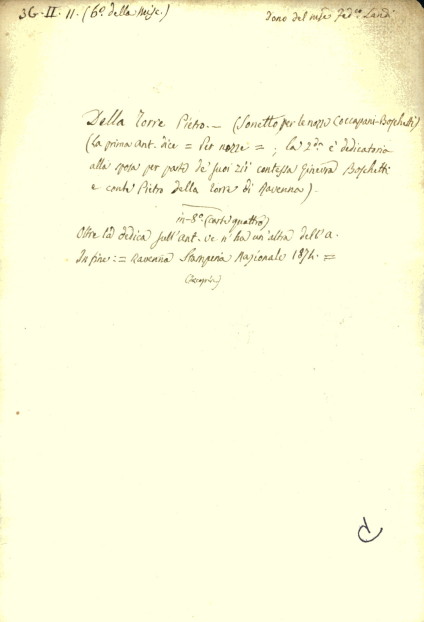 36. II. 11. (6º della Misc.)
Dono del mse Fedco Landi
Della Torre Pietro. — (Sonetto per le nozze Coccapani-Boschetti)
(la prima ant. dice = Per nozze = ; la 2da è dedicatoria
alla sposa per parte de' suoi zii contessa Ginevra Boschetti
e conte Pietro della Torre di Ravenna) —
in-8º (carte quattro)
Oltre la dedica sull'ant. ve n'ha un'altra dell'a.
In fine: = Ravenna Stamperia Nazionale 1874. =